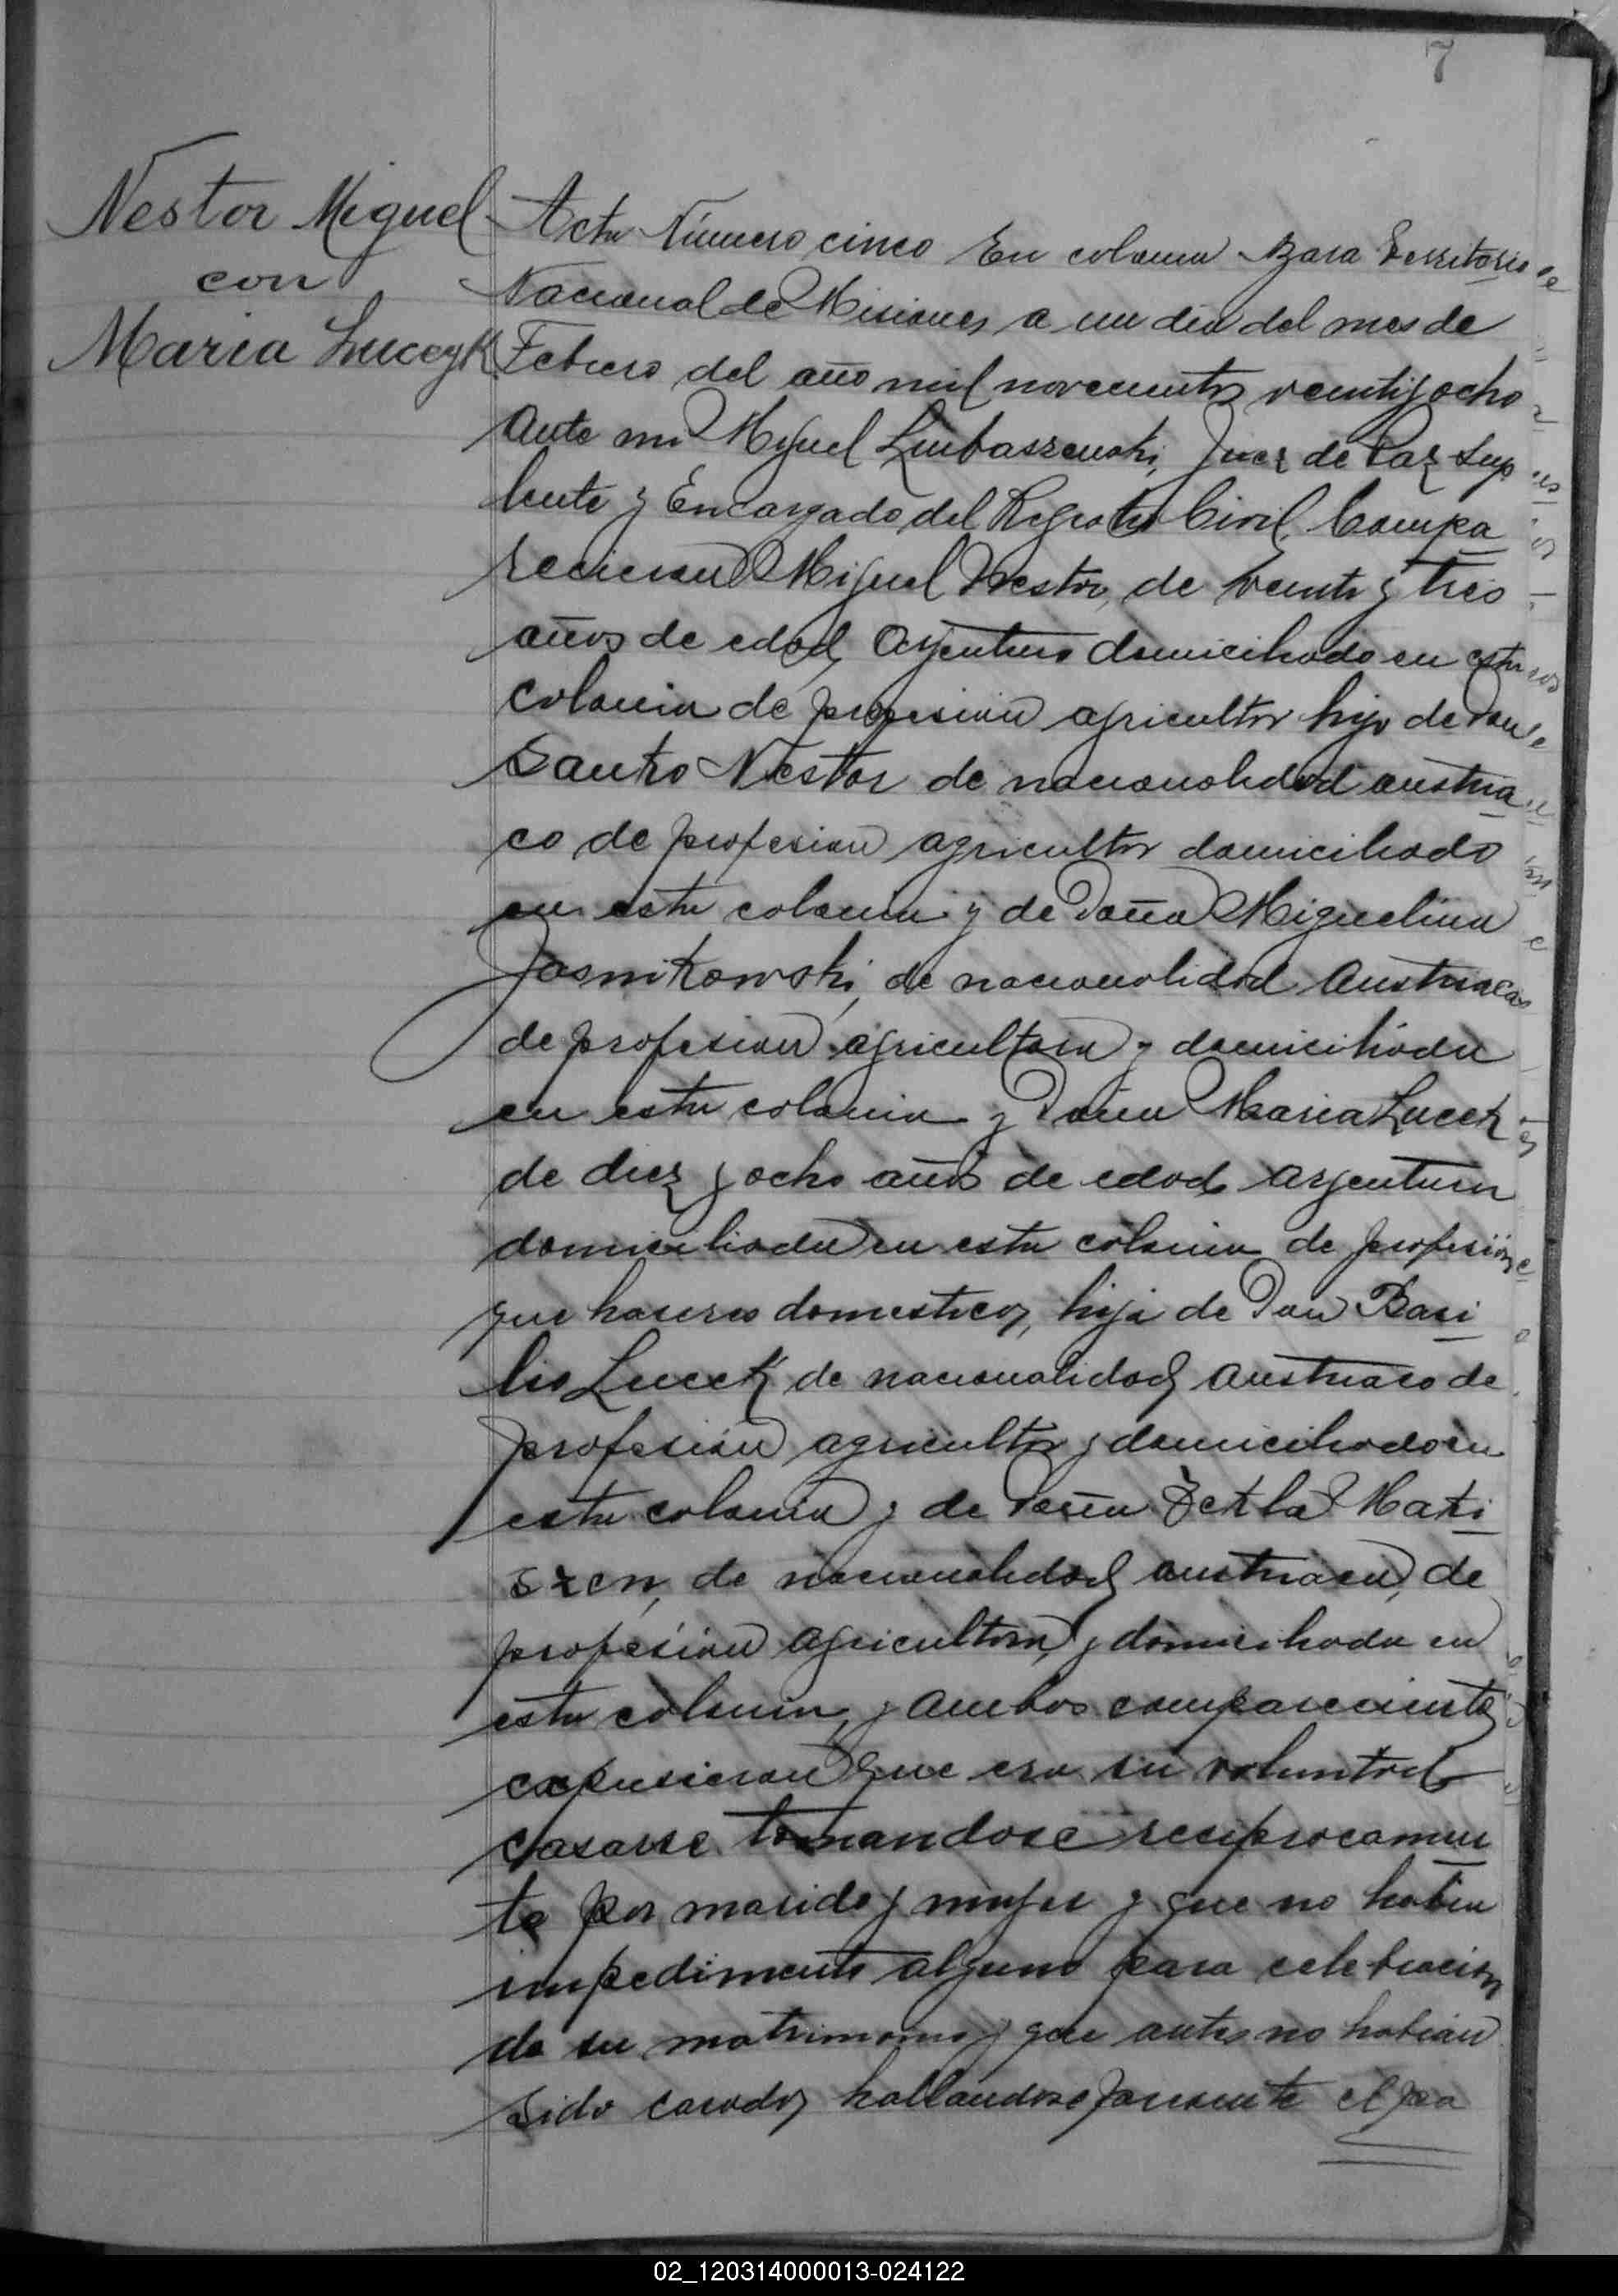 7
Nestor Miguel
con
Maria Luceyk
Acta Número cinco En colonia Azara Territorio
Nacional de Misiones a un dia del mes de
Febrero del año mil novecientos veintiyocho
ante mi Miguel Juez de Paz Sup
lente y Encargado del Registro Civil, Compa
recieron Miguel Nestor, de veinte y tres
años de edad, Argentino domiciliado en esta
colonia de profesion agricultor hijo de Don
Santo Nestor de nacionalidad austria
co de profesion agricultor domiciliado
en esta colonia y de Doña Miguelina
Josnikowski, de nacionalidad Austriaca
de profesion agricultora y domiciliada
en esta colonia y Doña Maria Lucek
de diez y ocho años de edad Argentina
domiciliada en esta colonia de profesión
que haseres domesticos, hija de Don Basi
lio Lucek de nacionalidad austriaco de
profesión agricultor y domiciliado en
esta colonia y de Doña Tekla Maki
szen, de nacionalidad austriaca, de
profesion agricultora, y domiciliada en
esta colonia, y ambos comparecientes
expusieron que era su voluntad
casarse tomandose reciprocamen
te por marido y mujer y que no habia
impedimento alguno para celebracion
de su matrimonio y que antes no habian
sido casados hallandose presente el pa
02_120314000013-024122